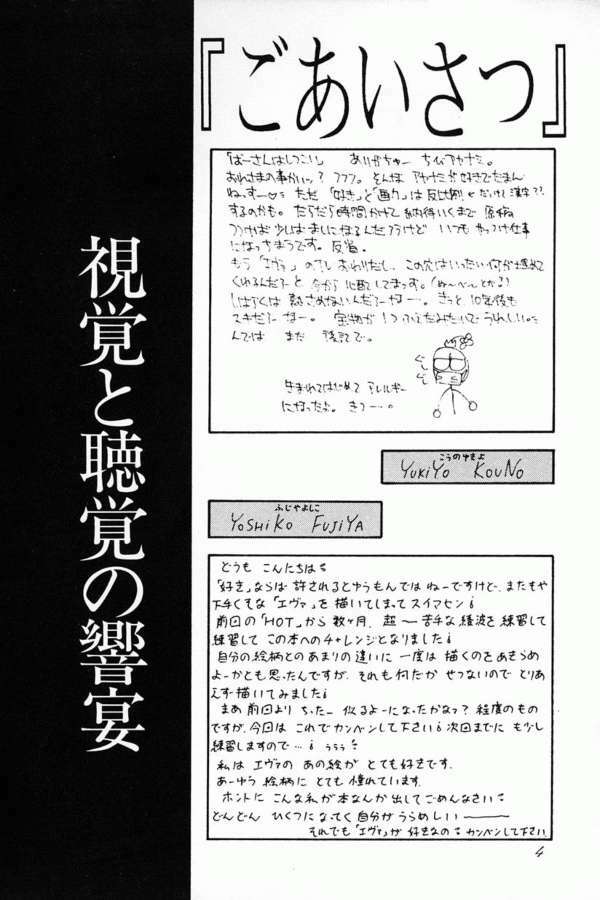 『ごあいさつ』
視覚と聴覚の響宴
「ばーさんはしつこい」 ありがちゅー ちびアヤナミ。
おれさまの事かいッ? フフフ。そんな アヤナミが好きでたまん
ねっすー♡ ただ「好き」と「画力」は反比例
するのかも。だらだら時間かけて納得いくまで 原稿
つければ少しはましになるんだろうけど いつも やっつけ仕事
になっちまうです。反省。
もう「エヴァ」の
くれるんだろーと 今から心配してまっす。
しばらくは 熱さめないんだろーなー…。きっと 10年後も
スキだろーなー。宝物が 1つふえたみたいで うれしい。
んでは また 後記で。
ぐしぐし
生まれてはじめて アレルギー
になったよ。きつー…。
こうのゆきよ
YUKIYO KOUNO
ふじやよしこ
YOSHIKO FUJIYA
どうも こんにちは
「好き」ならば 許されるとゆうもんでは ねーですけど、またもや
下手くそな「エヴァ」を描いてしまって スイマセン!
前回の「HOT」から 数ヶ月、超— 苦手な綾波を練習して
練習して この本へのチャレンジとなりました!
自分の絵柄とのあまりの違いに 一度は 描くのをあきらめ
よーかとも思ったんですが、それも何だか せつないので とりあ
えず描いてみました!
まぁ 前回より ちったー 似るよーになったかなァ? 程度のもの
ですが、今回は これでカンベンして下さい! 次回までに もう少し
練習しますので…! ううぅ
私は エヴァの あの絵が とても好きです。
あーゆう 絵柄に とても 憧れています。
ホントに こんな私が本なんか出してごめんなさい
どんどん ひくつになってく自分がうらめしい———
それでも「エヴァ」が 好きなの カンベンして下さい
4